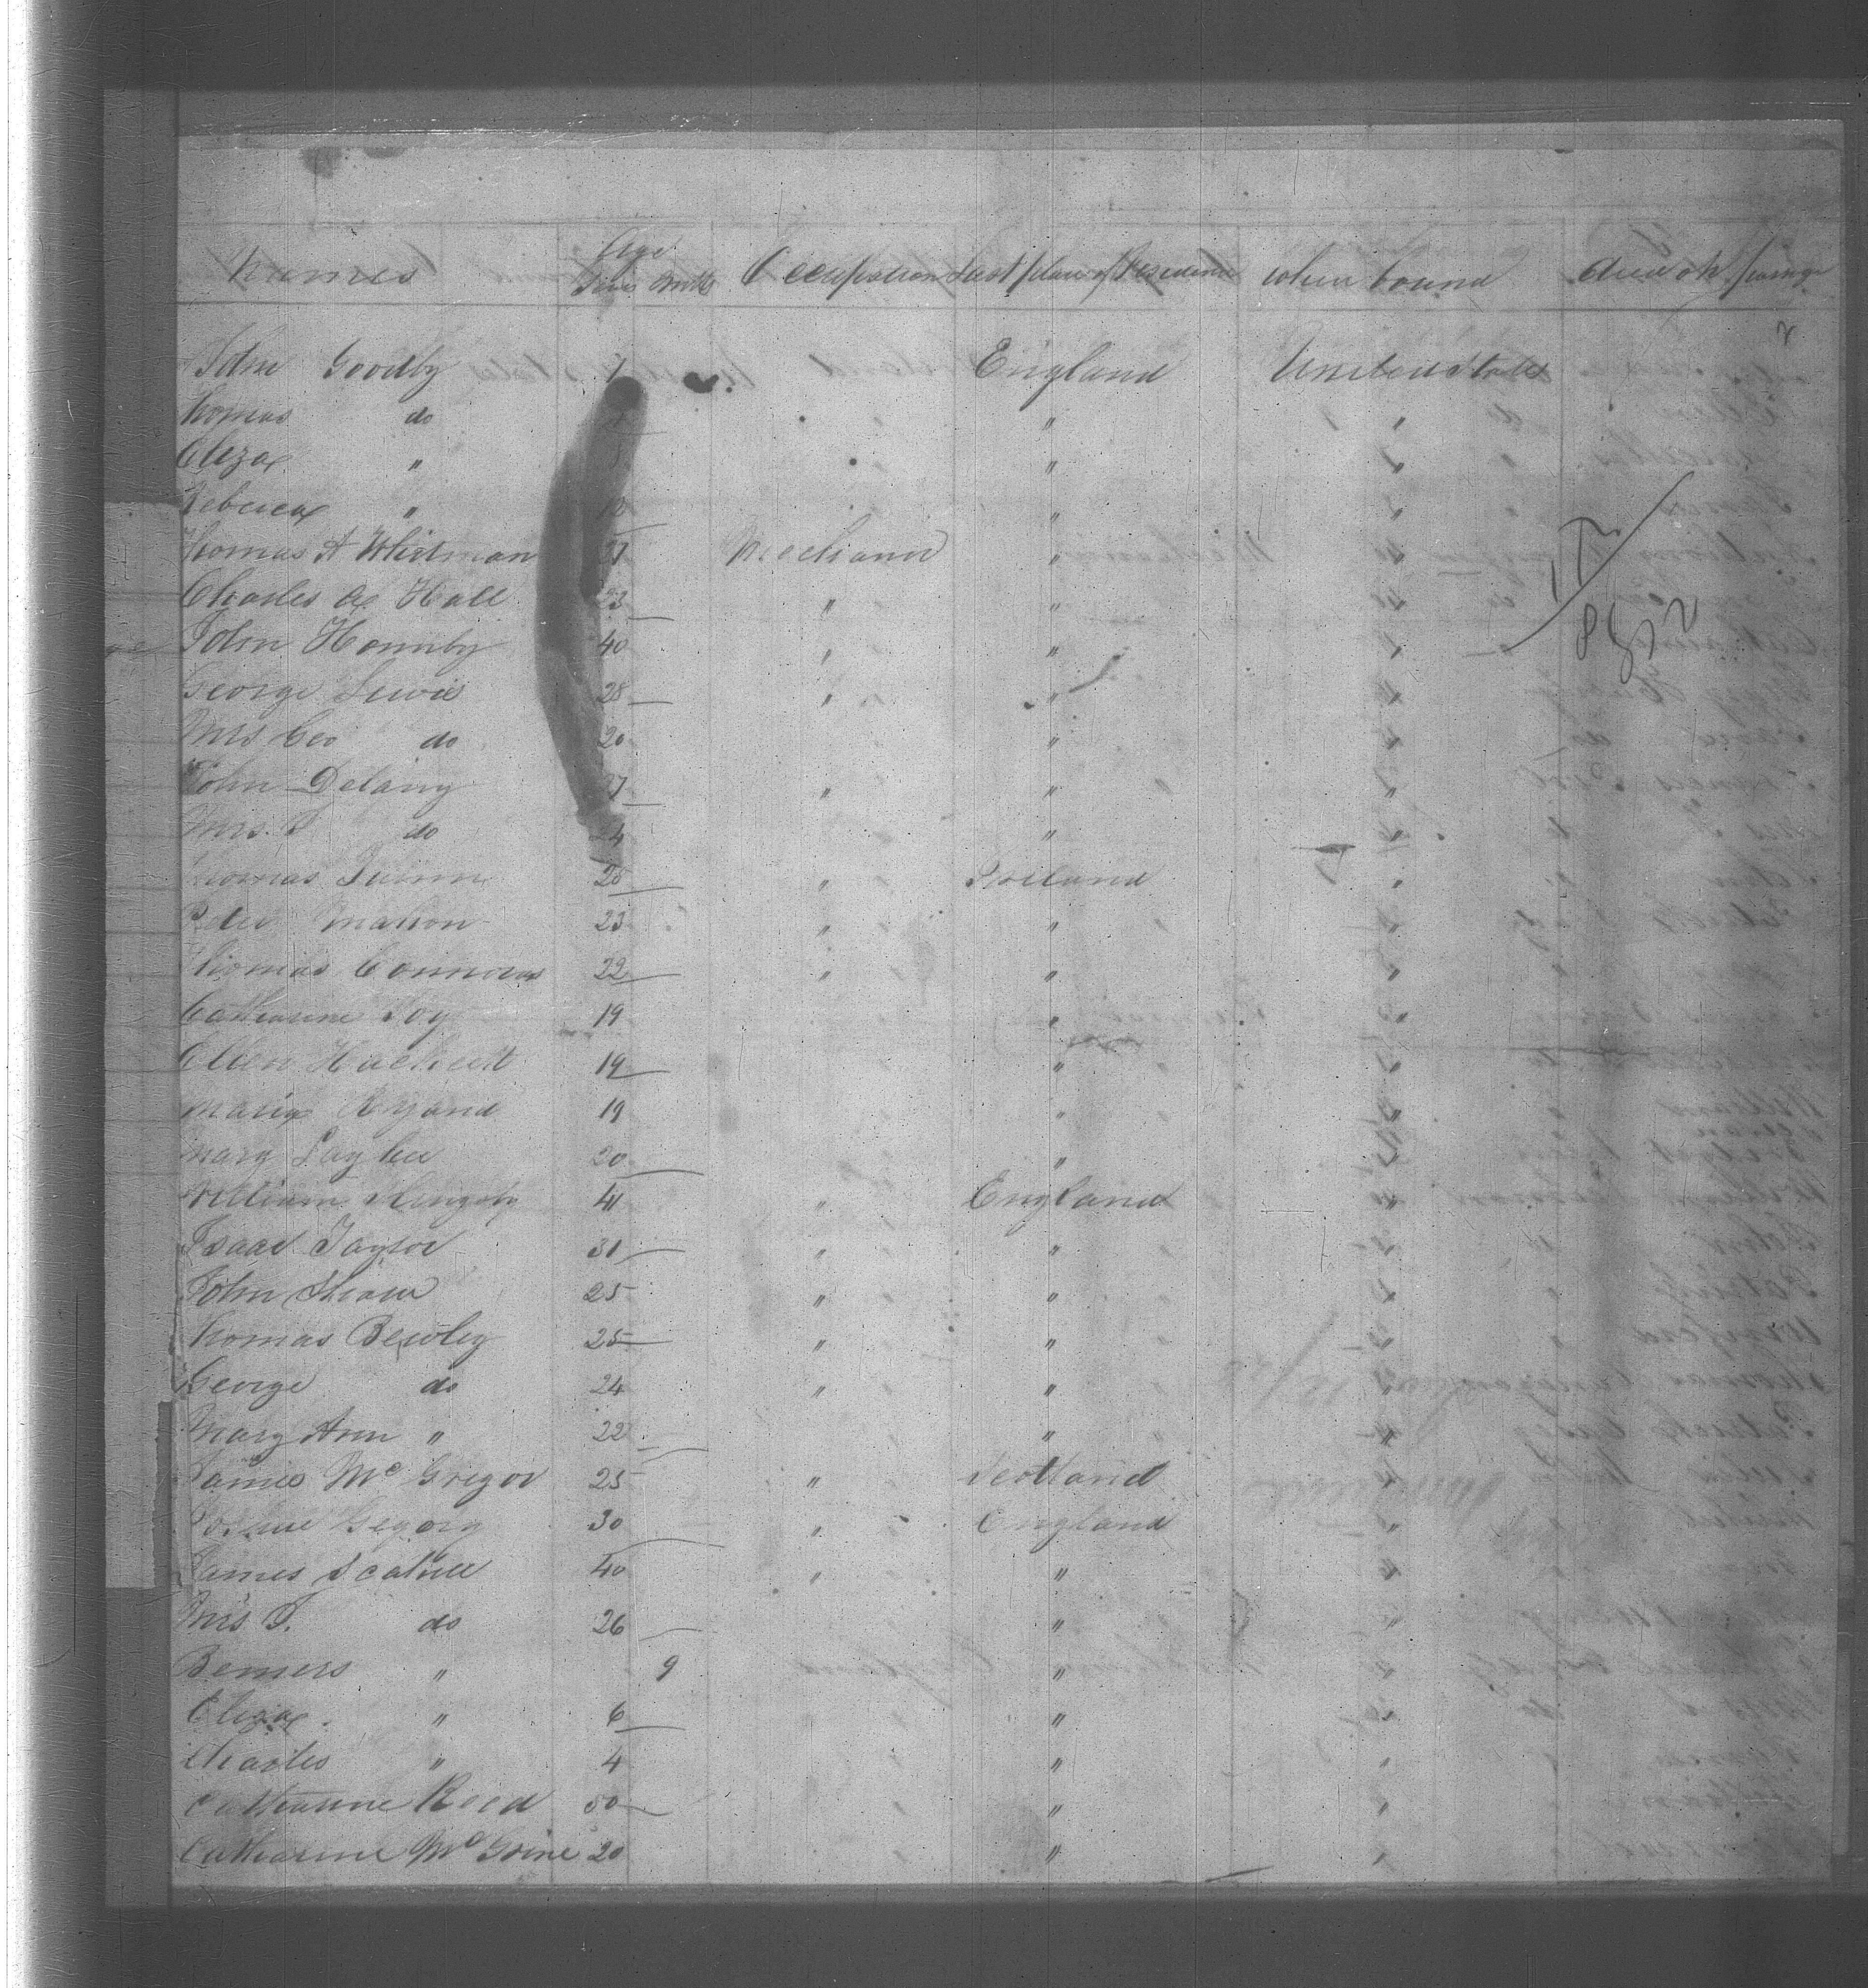 Names Age Years Mths Occupation Last place of Residence Where bound Died on passage
John Goodby 7 England United States
Thomas do " "
Eliza " " "
Rebecca " 10 " "
Thomas A Whitman 27 Mechanic " "
Charles A Hall 23 " " "
John Hornby 40 " " "
George Lewis 28 " " "
Mrs Geo do 20 " "
John Delany 27 " " "
Mrs J do 24 " "
Thomas Quinn 20 " Ireland "
Peter Mahon 23 " " "
Thomas Connors 22 " " "
Catharine Foy 19 " "
Ellen Hackett 19 " "
Maria Ryand 19 " "
Mary 20 " "
William 41 " England "
Isaac Taylor 31 " " "
John Shaw 25 " " "
Thomas Bewley 25 " " "
George do 24 " " "
Mary Ann " 22 " "
James Mc Gregor 25 " Scotland "
30 " England "
James 40 " " "
Mrs J. do 26 " "
" 9 " "
Eliza " 6 " "
Charles " 4 " "
Catharine Reed 50 " "
Catharine Mc 20 " "